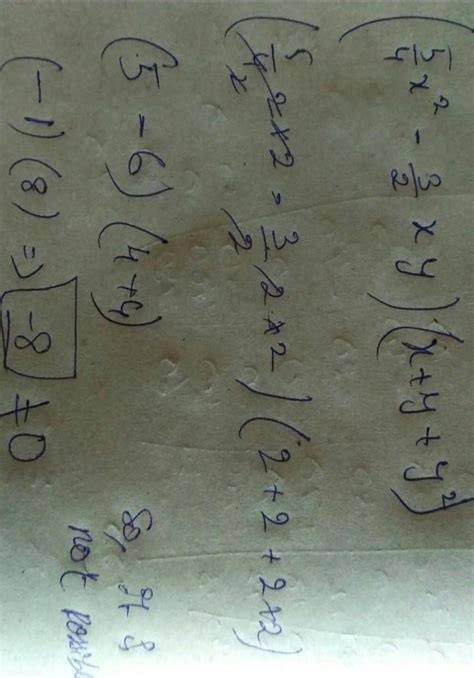 (5/4 x² - 3/2 xy)(x+y+y²)
(5/4 2×2 - 3/2 2×2)(2+2+2×2)
(5 - 6)(4+4)
(-1)(8) ⇒ -8 ≠ 0
So, It is
not possible